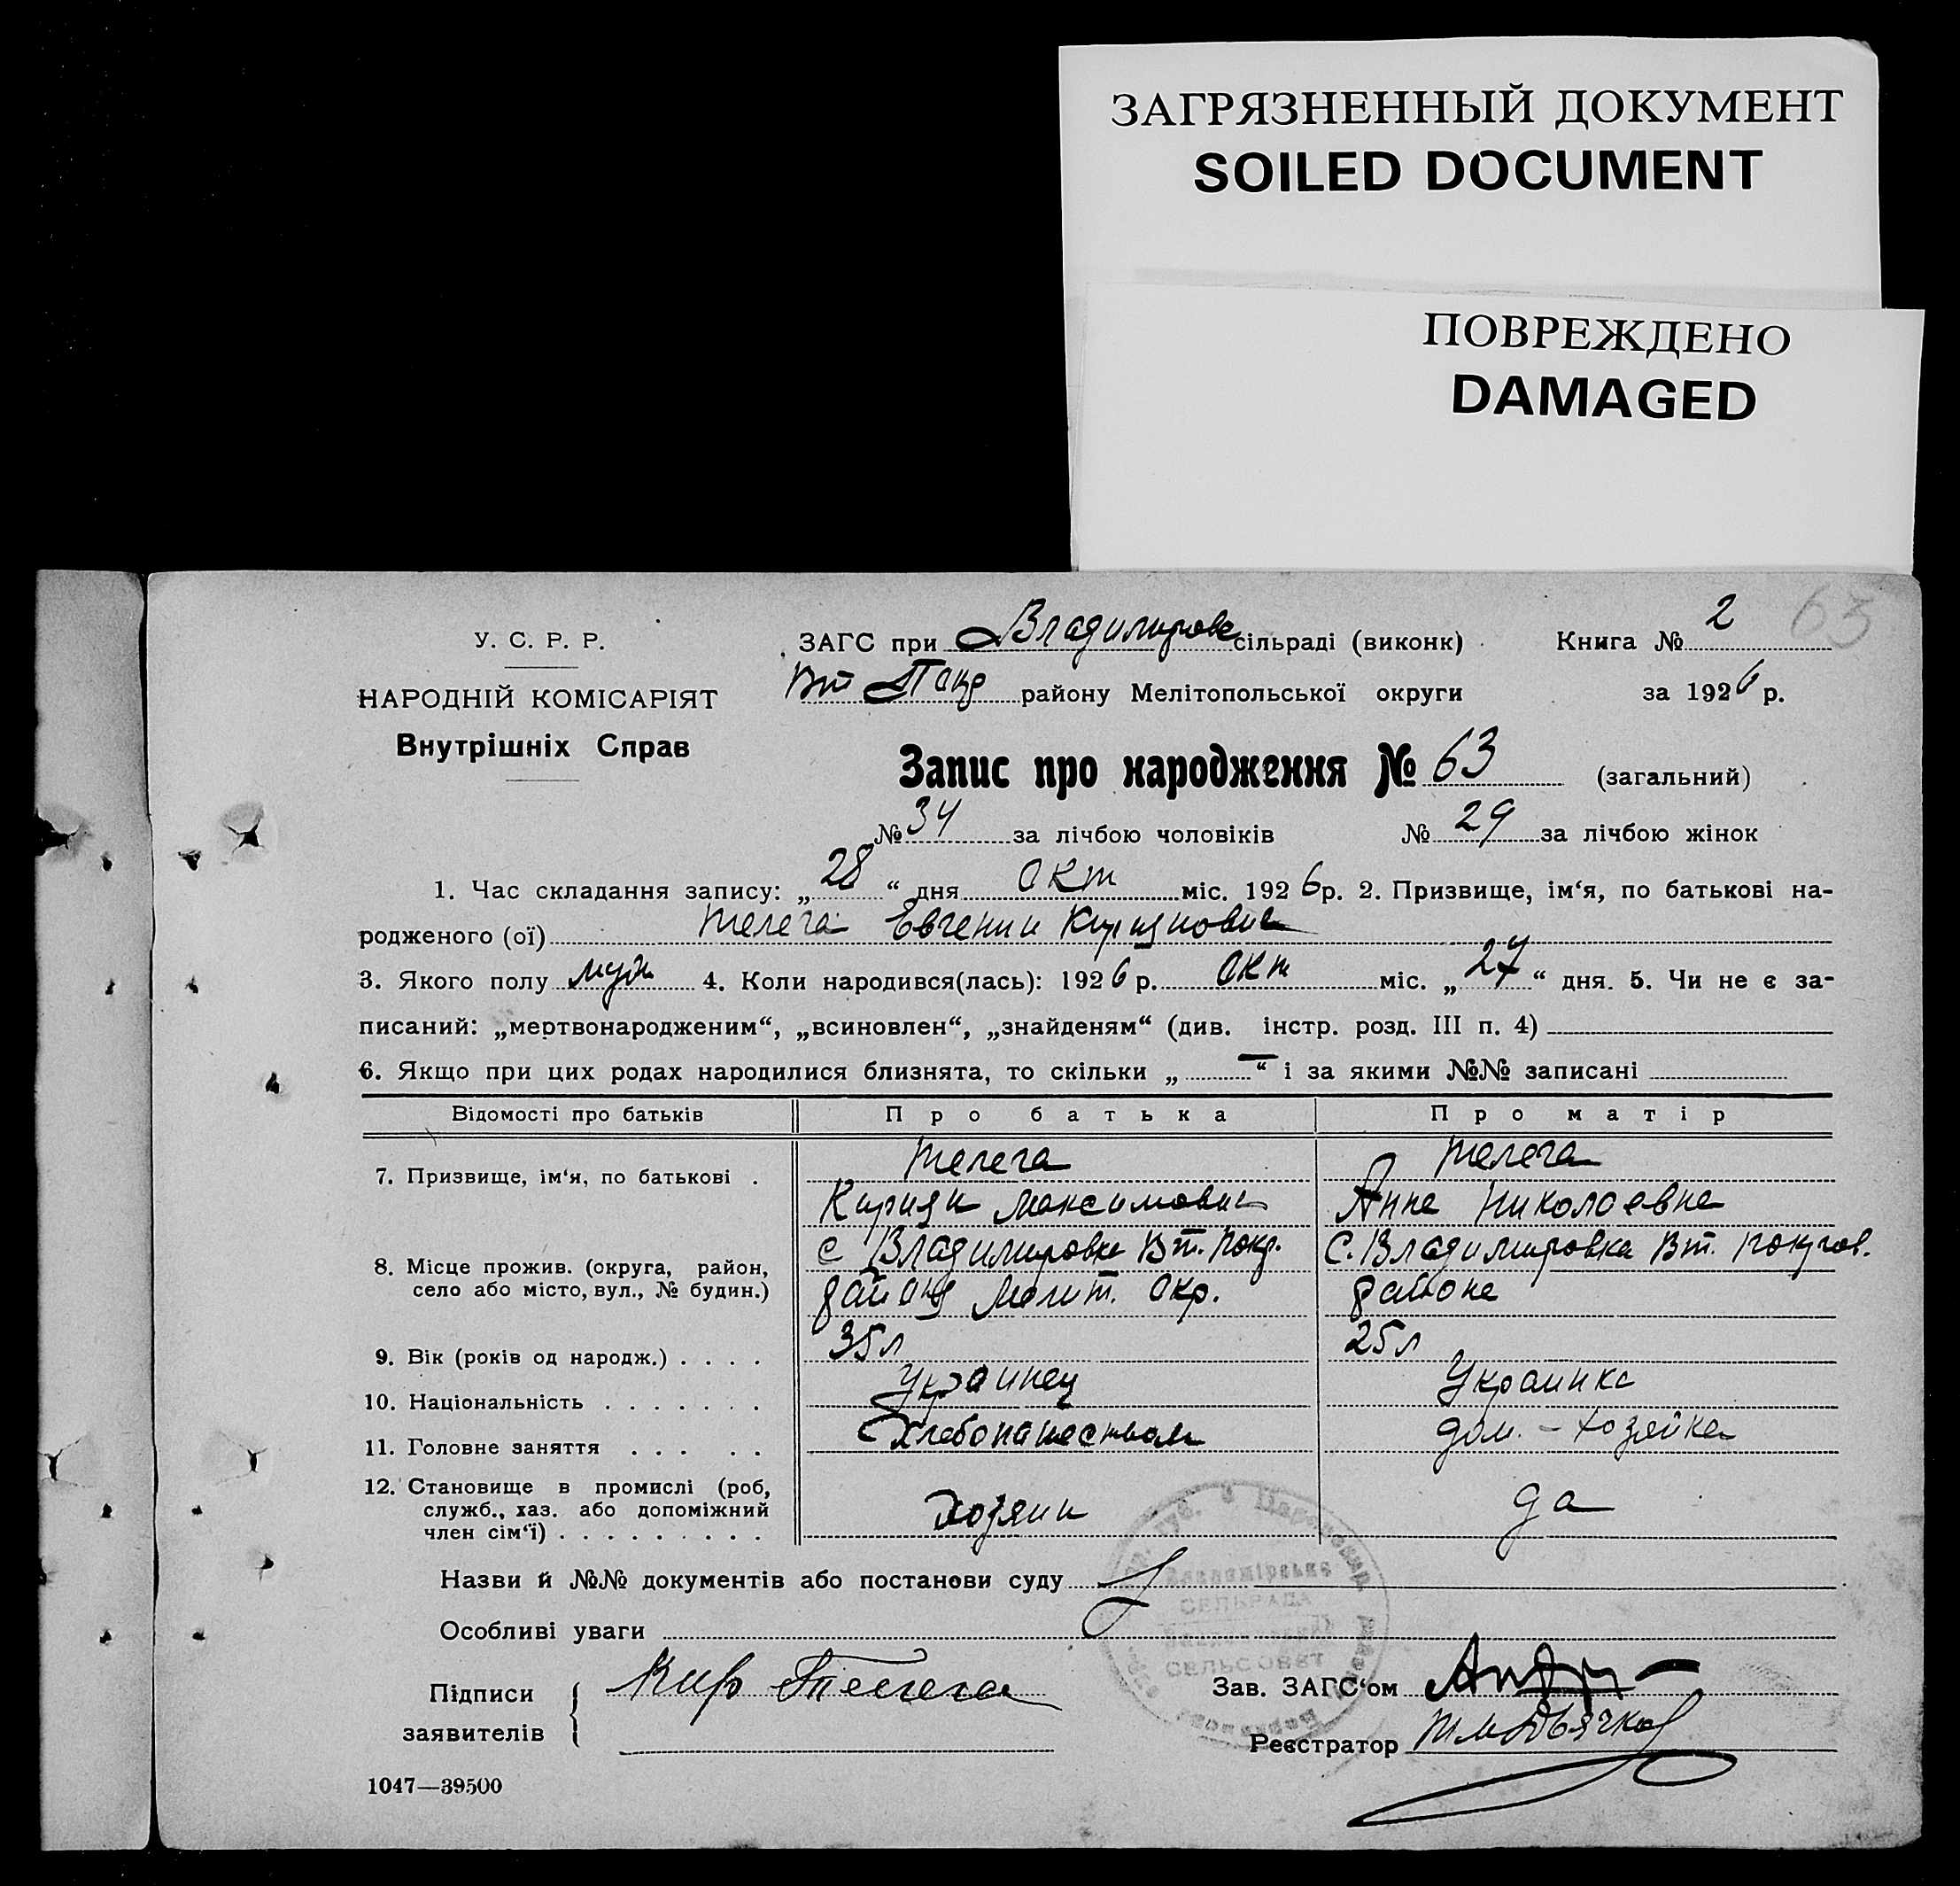 ЗАГРЯЗНЕННЫЙ ДОКУМЕНТ
SOILED DOCUMENT
ПОВРЕЖДЕНО
DAMAGED
63
У. С. Р. Р.
НАРОДНІЙ КОМІСАРІЯТ
Внутрішніх Справ
ЗАГС при Владимировс сільраді (виконк) Книга № 2
Вт Покр району Мелітопольської округи за 1926 р.
Запис про народження № 63 (загальний)
№ 34 за лічбою чоловіків № 29 за лічбою жінок
1. Час складання запису: „28“ дня Окт міс. 1926 р. 2. Призвище, ім‘я, по батькові на-
родженого (ої) Телега Евгений Кириянович
3. Якого полу муж 4. Коли народився(лась): 1926 р. Окт міс. „27“ дня. 5. Чи не є за-
писаний: „мертвонародженим“, „всиновлен“, „знайденям“ (див. інстр. розд. III п. 4)
6. Якщо при цих родах народилися близнята, то скільки „ — “ і за якими №№ записані
Відомості про батьків Про батька Про матір
7. Призвище, ім‘я, по батькові . Телега Телега
Кириян Максимович Анна Николаевна
8. Місце прожив. (округа, район, с Владимировка Вт. Покр. С. Владимировка Вт. Покров.
село або місто, вул., № будин.) района Мелит. Окр. района
9. Вік (років од народж.) . . . . 35 л 25 л
10. Національність . . . . . . . Украинец Украинка
11. Головне заняття . . . . . Хлебопашеством дом. - хозяйка
12. Становище в промислі (роб,
служб., хаз. або допоміжний Хозяин да
член сім‘ї) . . . . . . . . .
Назви й №№ документів або постанови суду
Особливі уваги
СЕЛЬРАДА
СЕЛЬСОВЕТ
Підписи Кир Телега Зав. ЗАГС‘ом
заявителів
Реєстратор
1047—39500